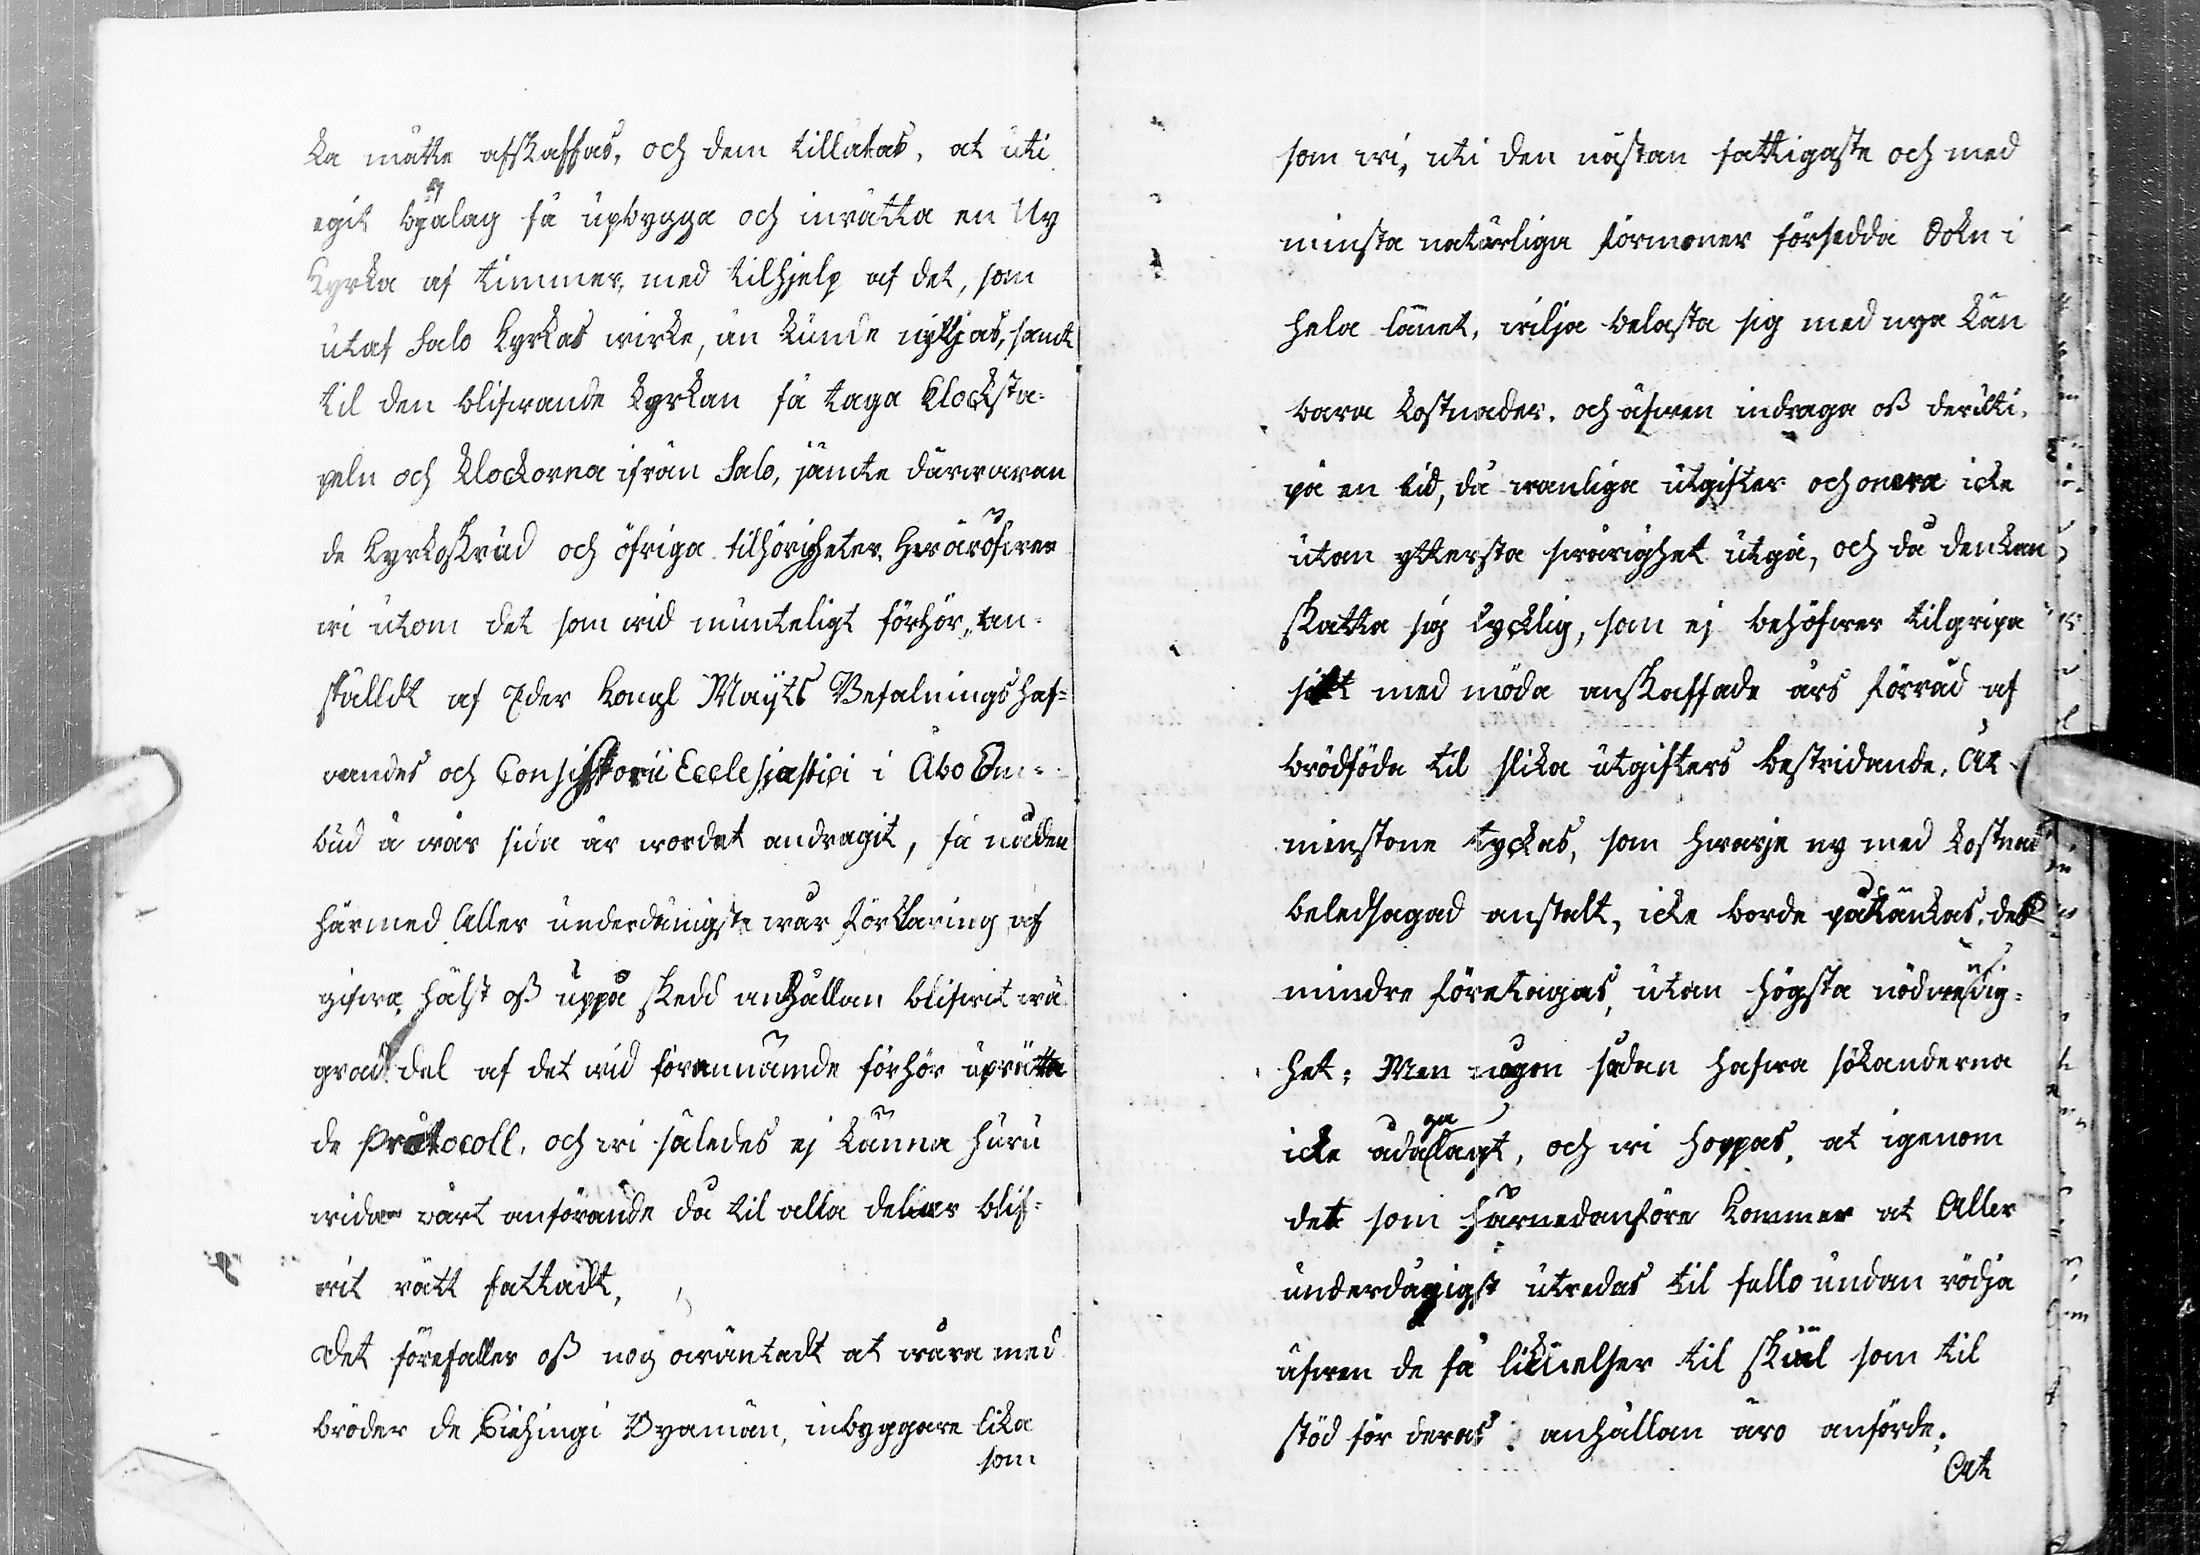 ka måtte afskaffas, och dem tillåtas, at uti
egit byalag få upbygga och inrätta en Ny
Kyrka af timmer, med tilhjelp af det, som
utaf Salo Kyrkas wirke, än kunde nyttjas, samt
til den blifwande Kyrkan få taga Klocksta-
peln och Klockorna ifrån Salo, jämte därwaran
de Kyrkoskrud och öfriga tilhörigheter. Heröfwer
wi utom det som wid munteligt förhör, an-
ställdt af Eder Kongl Maÿts Befalningshaf-
wandes och Consistorii Ecclesiastici i Åbo Om-
bud å wår sida är wordet andragit, få i nåder
härmed Aller underdånigste wår förklaring af
gifwa, hälst oß uppå skedd anhållan blifwit wä
grad del af det wid förenämde förhör uprätta
de Protocoll, och wi således ej känna huru
wida wårt anförande då til alla delar blif-
wit rätt fattadt,
Det förefaller oß nog owäntadt at wåra med
bröder de Hiehingi Byamän, inbyggare lika
som
som wi, uti den nästan fattigaste och med
minsta naturliga förmoner försedda Sokn i
hela länet, wilja belasta sig med nya kän
bara kostnader, och äfwen indraga oß deruti,
på en tid, då wanliga utgifter och onera icke
utan yttersta swårighet utgå, och då den kan
skatta sig lycklig, som ej behöfwer tilgripa
sitt med möda anskaffade års förråd af
brödföda til slika utgifters bestridande. Åt
minstone tyckas, som hwarje ny med kostnad
beledsagad anstalt, icke borde påtänkas, det
mindre företagas, utan högsta nödwendig-
het: Men någon sådan hafwa sökanderna
icke ådagalagt, och wi hoppas, at igenom
det som härnedanföre kommer at Aller
underdånigst utredas til fullo undanrödja
äfwen de få liknelser til skiäl som til
stöd för deras anhållan äro anförde.
At